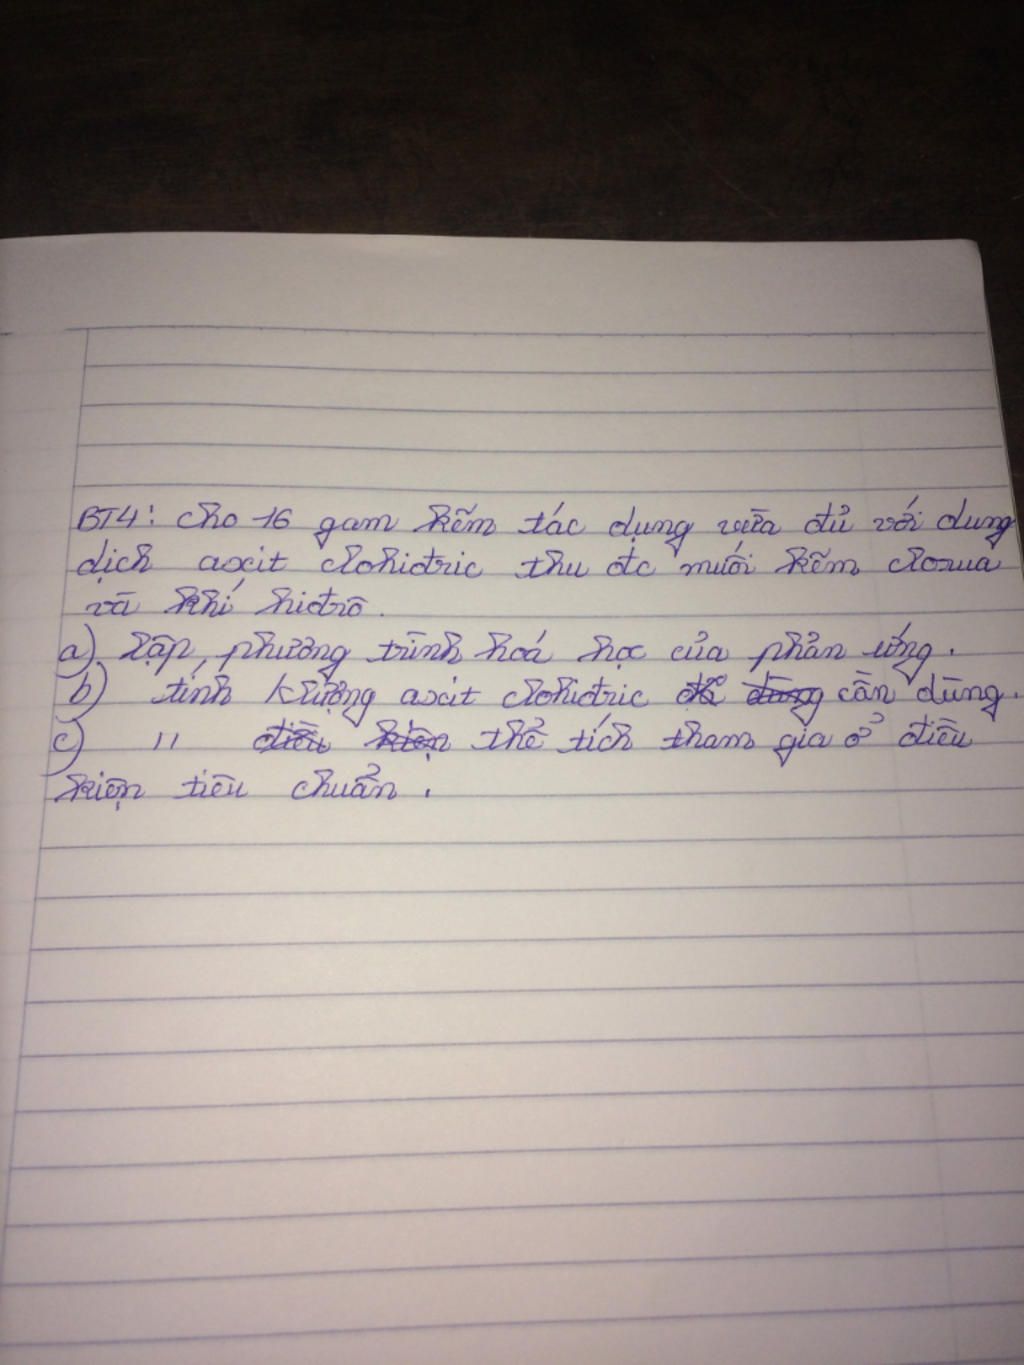 BT4: Cho 16 gam kẽm tác dụng vừa đủ với dung
dịch axit clohiđric thu đc muối kẽm clorua
và khí hiđrô.
a) lập phương trình hoá học của phản ứng.
b) tính klượng axit clohiđric để dùng cần dùng.
c) " điều kiện thể tích tham gia ở điều
kiện tiêu chuẩn.